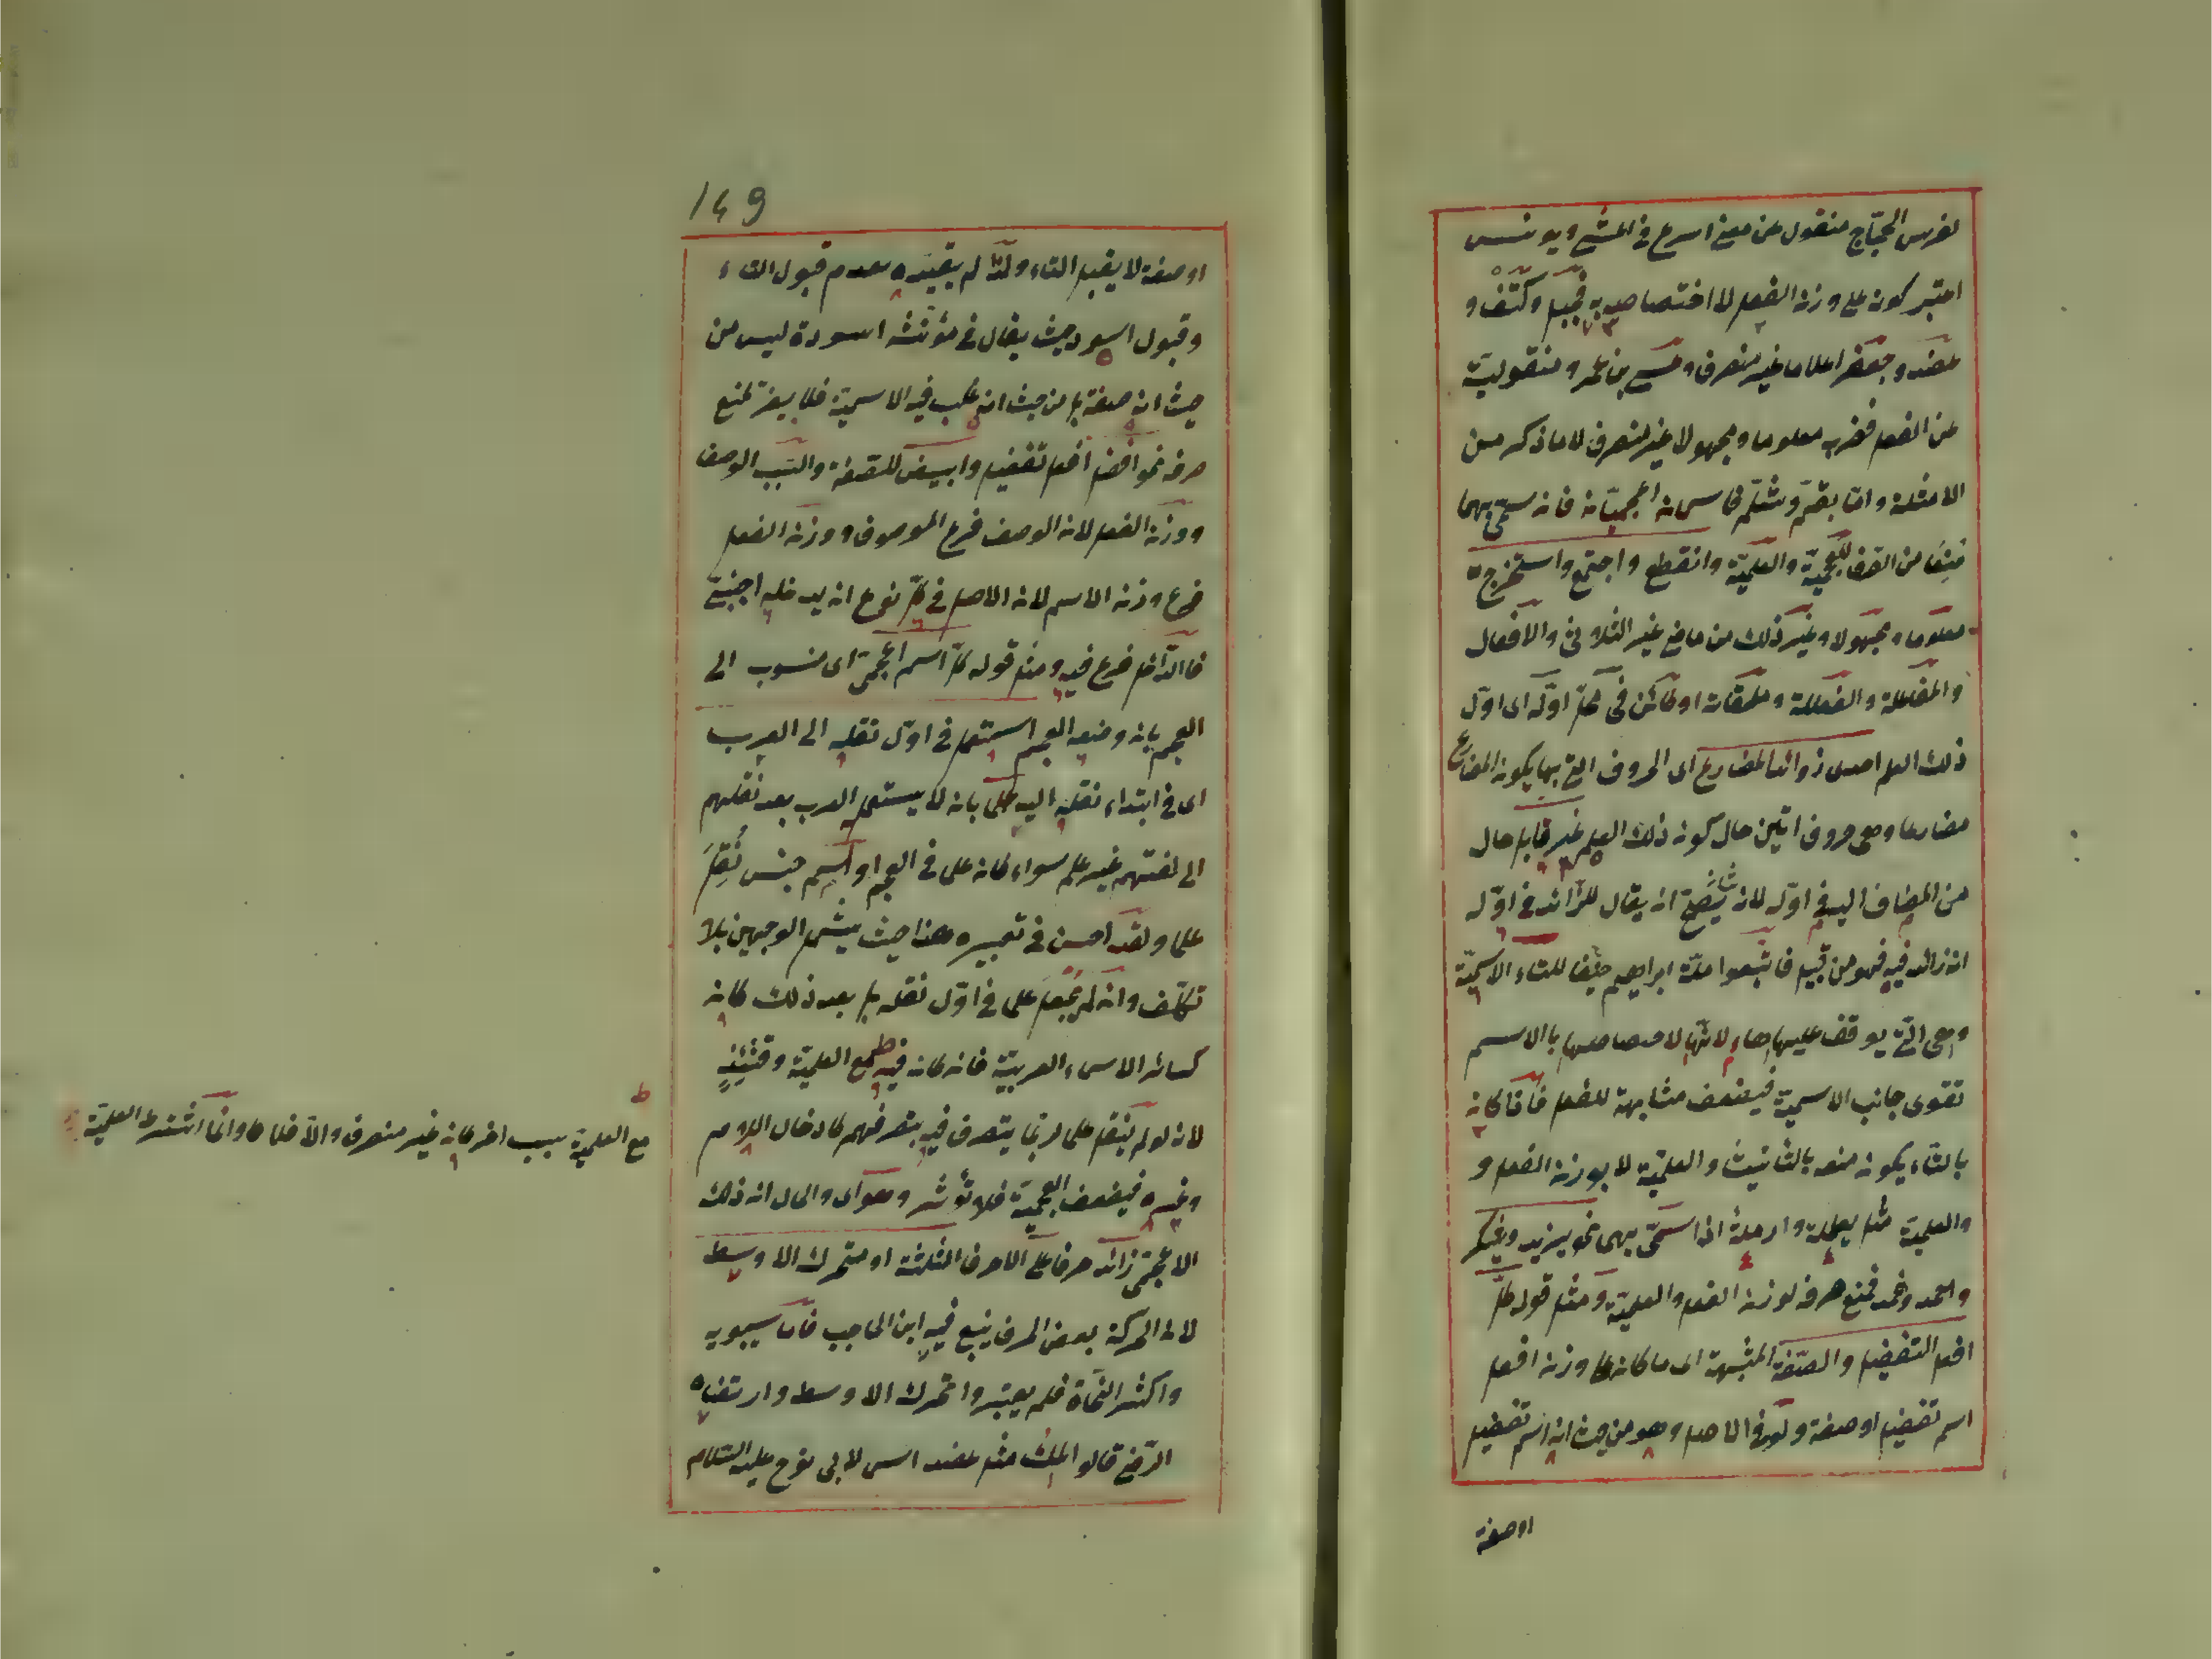 لفرس الحجّاج منقول عن معنى اسرع في المشي ويونس
اعتبر كونه على وزن الفعل لا اختصاصه به فجبل وكتف و
عضد وجعفر اعلاما غير منصرف وعيسى بن عمر و منقوليته
عن الفعل فضرب معلوما ومجهولا غير منصرف لا ما ذكر من
الامثلة واما بقّم وشلّم فاسمان اعجميّان فانه سمّي بهما
منعا من الصرف للعجميّة والعلميّة وانقطع واجتمع واستخرج
معلوما ومجهولا وغير ذلك من ماضي غير الثلاثي والافعال
والمفاعلة والفعللة وملحقاته او كائن في كلّ اوّله اى اوّل
ذلك العلم احدى زوائد المضارع اى الحروف التي بها يكون المضارع
مضارعا وهى حروف اتين حال كونه ذلك العلم غير قابل حال
من المضاف اليه في اوّله لانه يصحّ ان يقال للزائد في اوّله
انه زائد فيه فهو من قبيل فاتّبعوا ملّة ابراهيم حنيفا للتاء الاسميّة
وهى التي يوقف عليها هاء لانّها لاختصاصها بالاسم
تقوى جانب الاسميّة فيضعف مشابهة للفعل فاذا كان
بالتاء يكون منعه بالتأنيث والعلميّة لا بوزن الفعل و
والعلميّة مثل يعملة وارملة اذا سمّي بهما نحو يزيد ويشكر
واحمد ونحمد فمنع صرفه لوزن الفعل والعلميّة ومثل قوله كلّ
افعل التفضيل والصّفة المشبهة اى ما كان على وزن افعل
اسم تفضيل او صفة ولو في الاصل وهو من حيث انه اسم تفضيل
او صفة
149
او صفة لا يقبل التاء ولذا لم يقيّده بعدم قبول التاء
وقبول اسود حيث يقال في مؤنثه اسودة ليس من
حيث انه صفة بل من حيث انه غلب فيه الاسميّة فلا يضرّ لمنع
صرفه نحو افضل افعل تفضيل وابيض للصفة والسّبب الوصف
ووزن الفعل لان الوصف فرع الموصوف ووزن الفعل
فرع وزن الاسم لان الاصل في كلّ نوع ان يدخله اجنبيّ
فالدّاخل فرع فيه ومثل قوله كلّ اسم اعجميّ اى منسوب الى
العجم بانه وضعه العجم استعمل في اوّل نقله الى العرب
اى في ابتداء نقله اليه علما بان لا يستعمله العرب بعد نقلهم
الى لغتهم غير علم سواء كان علما في العجم او اسم جنس نُقِلَ
علما ولقد احسن في تعبيره هذا حيث يشمل الوجهين بلا
تكلّف وان لم يجعل علما في اوّل نقله بل بعد ذلك كان
كسائر الاسماء العربيّة فان كان فيه مع العلميّة وقتئذٍ
لانه لو لم ينقل علما لربّما يتصرف فيه بتصرفهم كادخال اللام
وغيره فيضعف العجميّة فلا تؤثر وهو اى والحال ان ذلك
الاعجمي زائد حرفا على الاحرف الثلثة او متحرك الاوسط
لانّ الحركة بعض الحرف يتبع فيه ابن الحاجب فامّا سيبويه
واكثر النّحاة فلم يعتبروا تحرك الاوسط وارتضاه
الرّضي قالو الملك مثل عضد اسم لابى نوح عليه السّلام
مع العلميّة سبب اخر كان غير منصرف والاّ فلا وانّما اشترط العلميّة